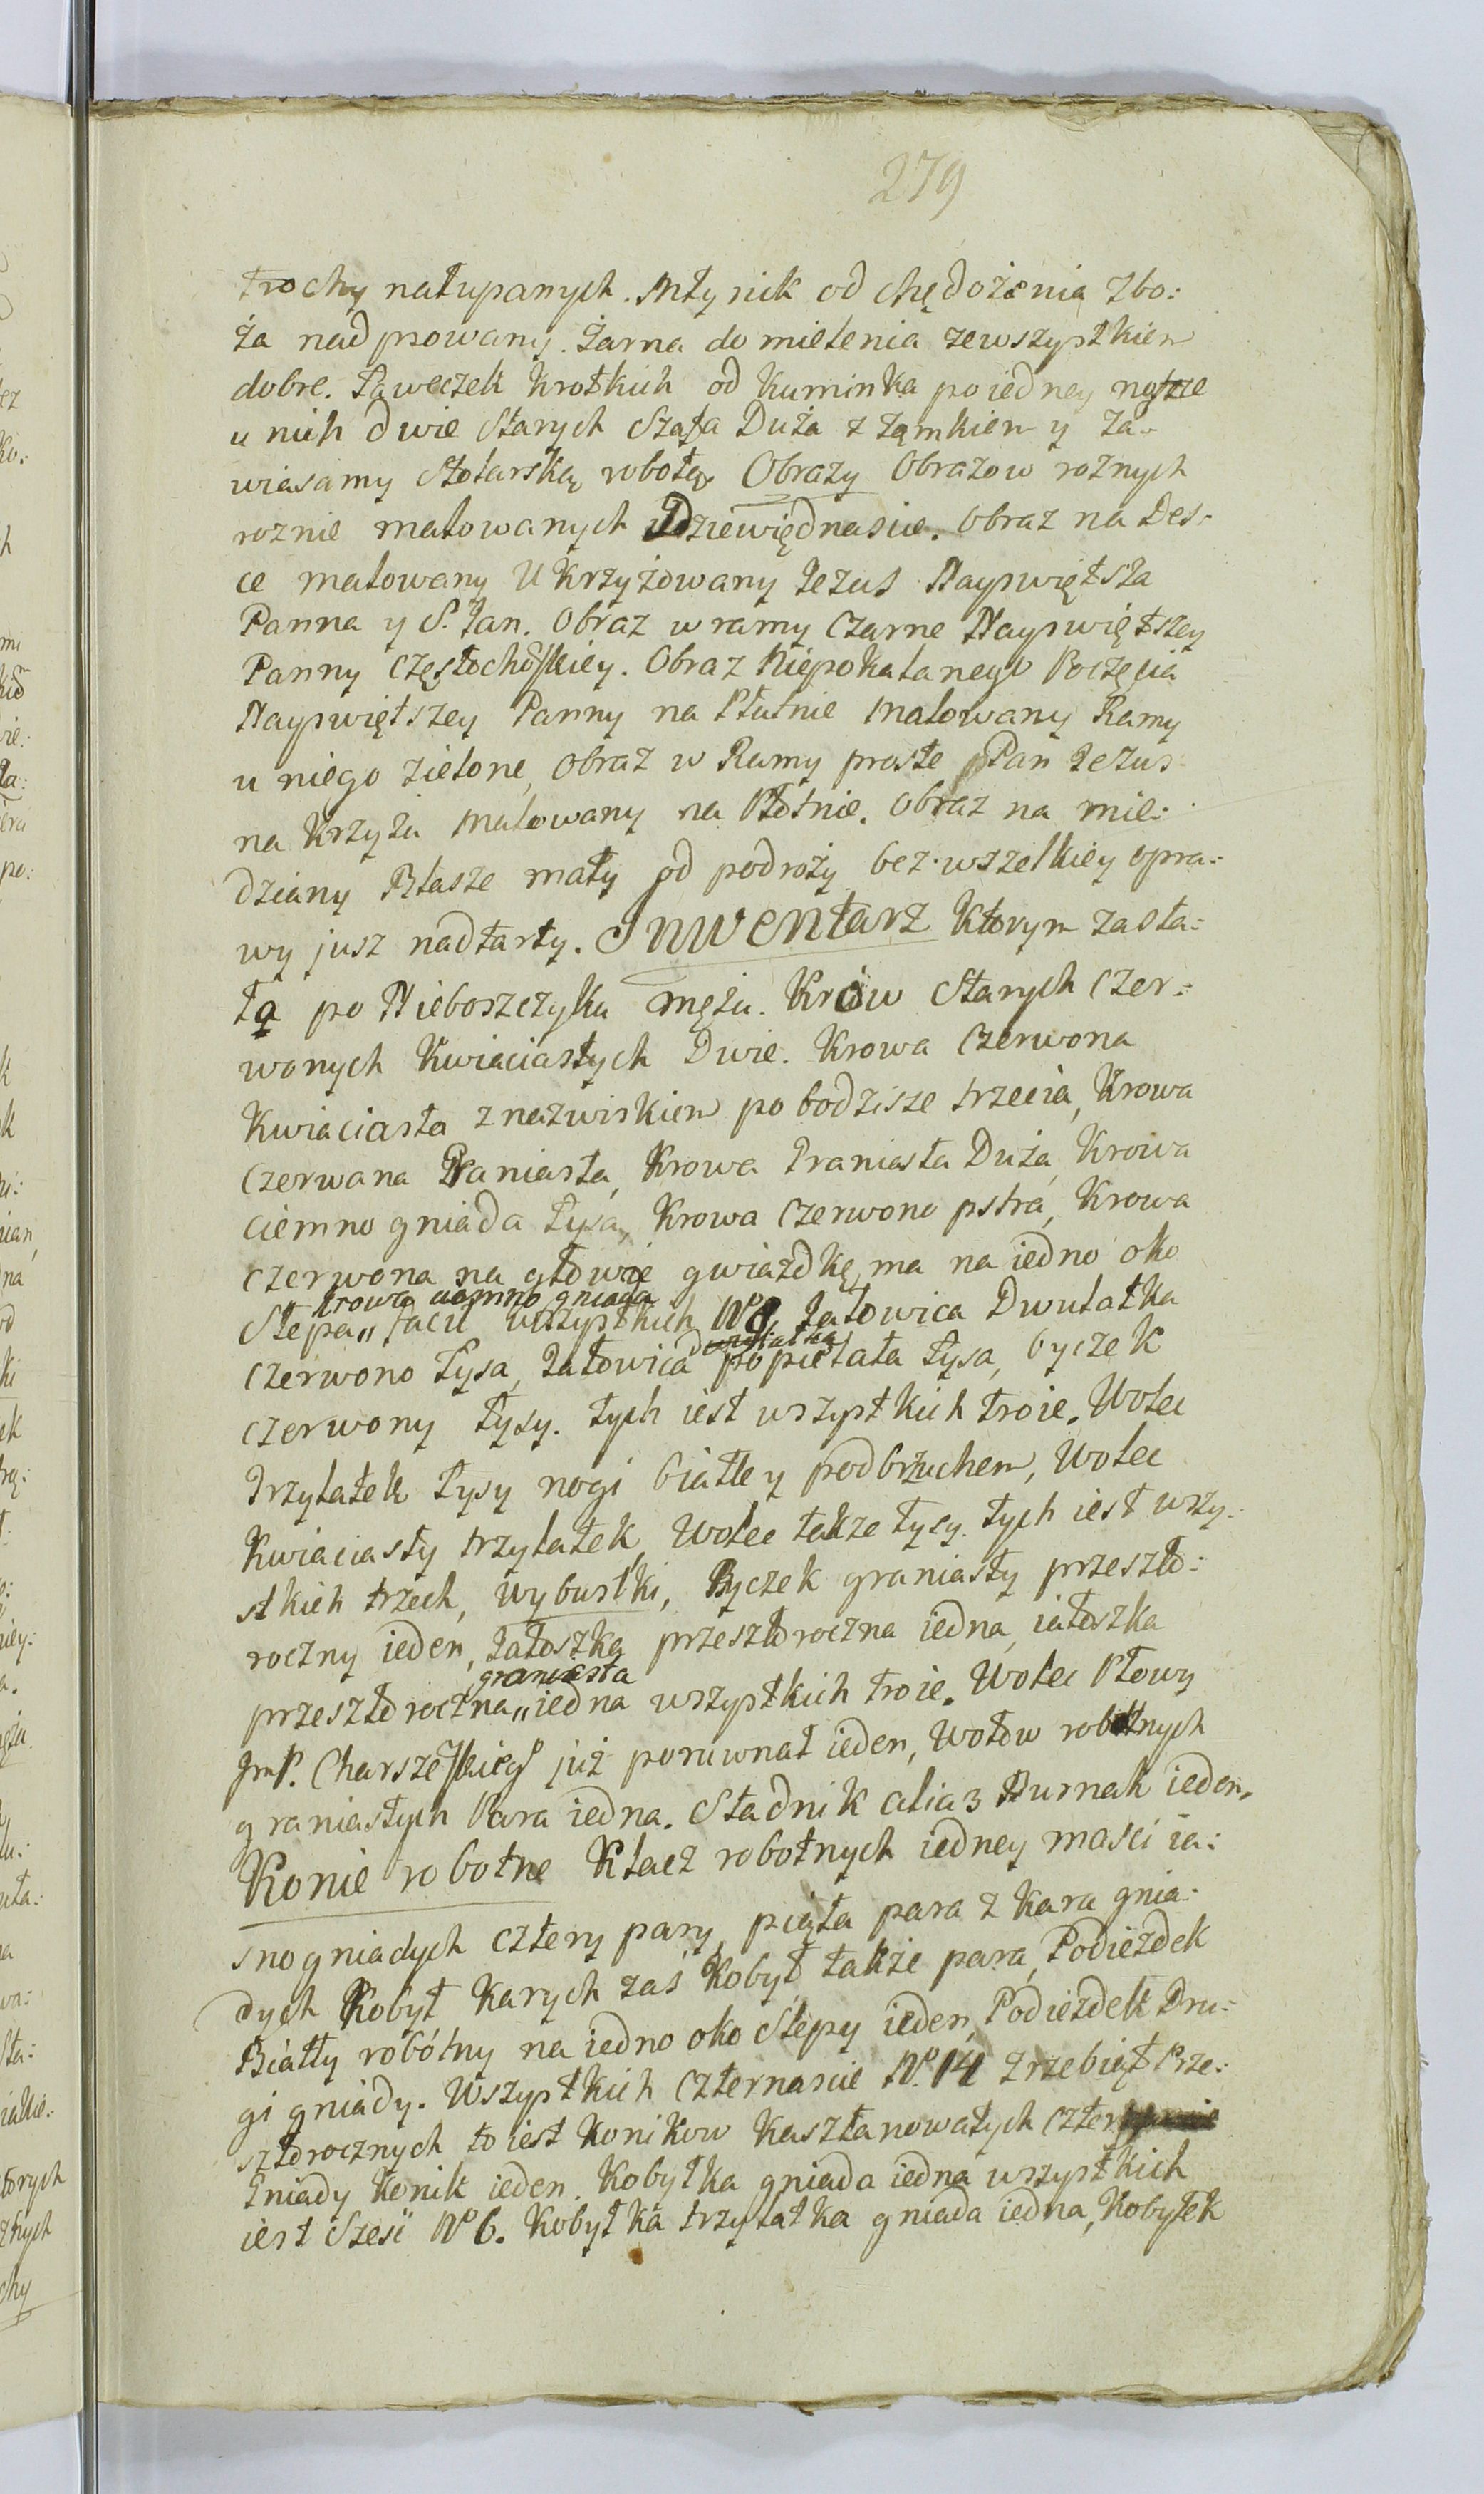 279
trochy nałupanych. Młynik od chędożenia zbo:
ża nadpsowany. Żarna do mielenia zewszystkiem
dobre. Ławeczek krotkich od kuminka po iedney nodze
u nich dwie starych Szafa Duża z zamkiem y za-
wiasamy stolarską robotą. Obrazy Obrazow roznych
roznie malowanych Dziewiędnascie. Obraz na Des-
ce malowany Ukrzyżowany Jezus Nayswiętsza
Panna y S. Jan. Obraz w ramy czarne Nayswiętszey
Panny Częstochoskiey. Obraz Niepokalanego Poczęcia
Nayswiętszey Panny na Płutnie malowany Ramy
u niego zielone, Obraz w Ramy proste Pan Jezus
na Krzyżu malowany na Płotnie. Obraz na mie:
dziany Blasze mały od podroży bez wszelkiey opra:
wy jusz nadtarty. Inwentarz ktorym zasta:
ła po Nieboszczyku mężu. Krów starych czer:
wonych kwiaciastych Dwie. Krowa czerwona
kwiaciasta z nazwiskiem po bodzisze trzecia, Krowa
czerwana Graniasta, Krowa Graniasta Duża, Krowa
ciemno gniada łysa, Krowa czerwono pstra, Krowa
czerwona na głowie gwiazdkę ma na iedno oko
krowa ciemno gniada
Slepa,, facit wszystkich No 9, Jałowica Dwulatka
czerwono łysa, Jałowica popielata łysa, byczek
czerwony łysy. tych iest wszystkich troie. Wolec
Trzylatek łysy nogi białe y podbrzuchem, Wolec
kwiaciasty trzylatek, Wolec także łysy. tych iest wszy-
stkich trzech, wybustki, Byczek graniasty przeszło:
roczny ieden, Jałoszka przeszłoroczna iedna, iałoszka
graniasta
przeszłoroczna,, iedna wszystkich troie. Wolec Płowy
już porownał ieden, Wołow robotnych
graniastych Para iedna. Stadnik alias Burnak ieden.
Konie robotne Klacz robotnych iedney masci ia:
snogniadych cztery pary, piąta para z kara gnia:
dych Kobył karych zaś Kobył także para, Podiezdek
Biały robótny na iedno oko Slepy ieden, Podiezdek Dru:
gi gniady. Wszystkich czternascie No. 14 Zrzebiąt Prze:
szłorocznych to iest konikow kasztanowatych cztery
Gniady konik ieden. Kobyłka gniada iedna wszystkich
iest Sześć No 6. Kobyłka trzylatka gniada iedna, Kobyłek